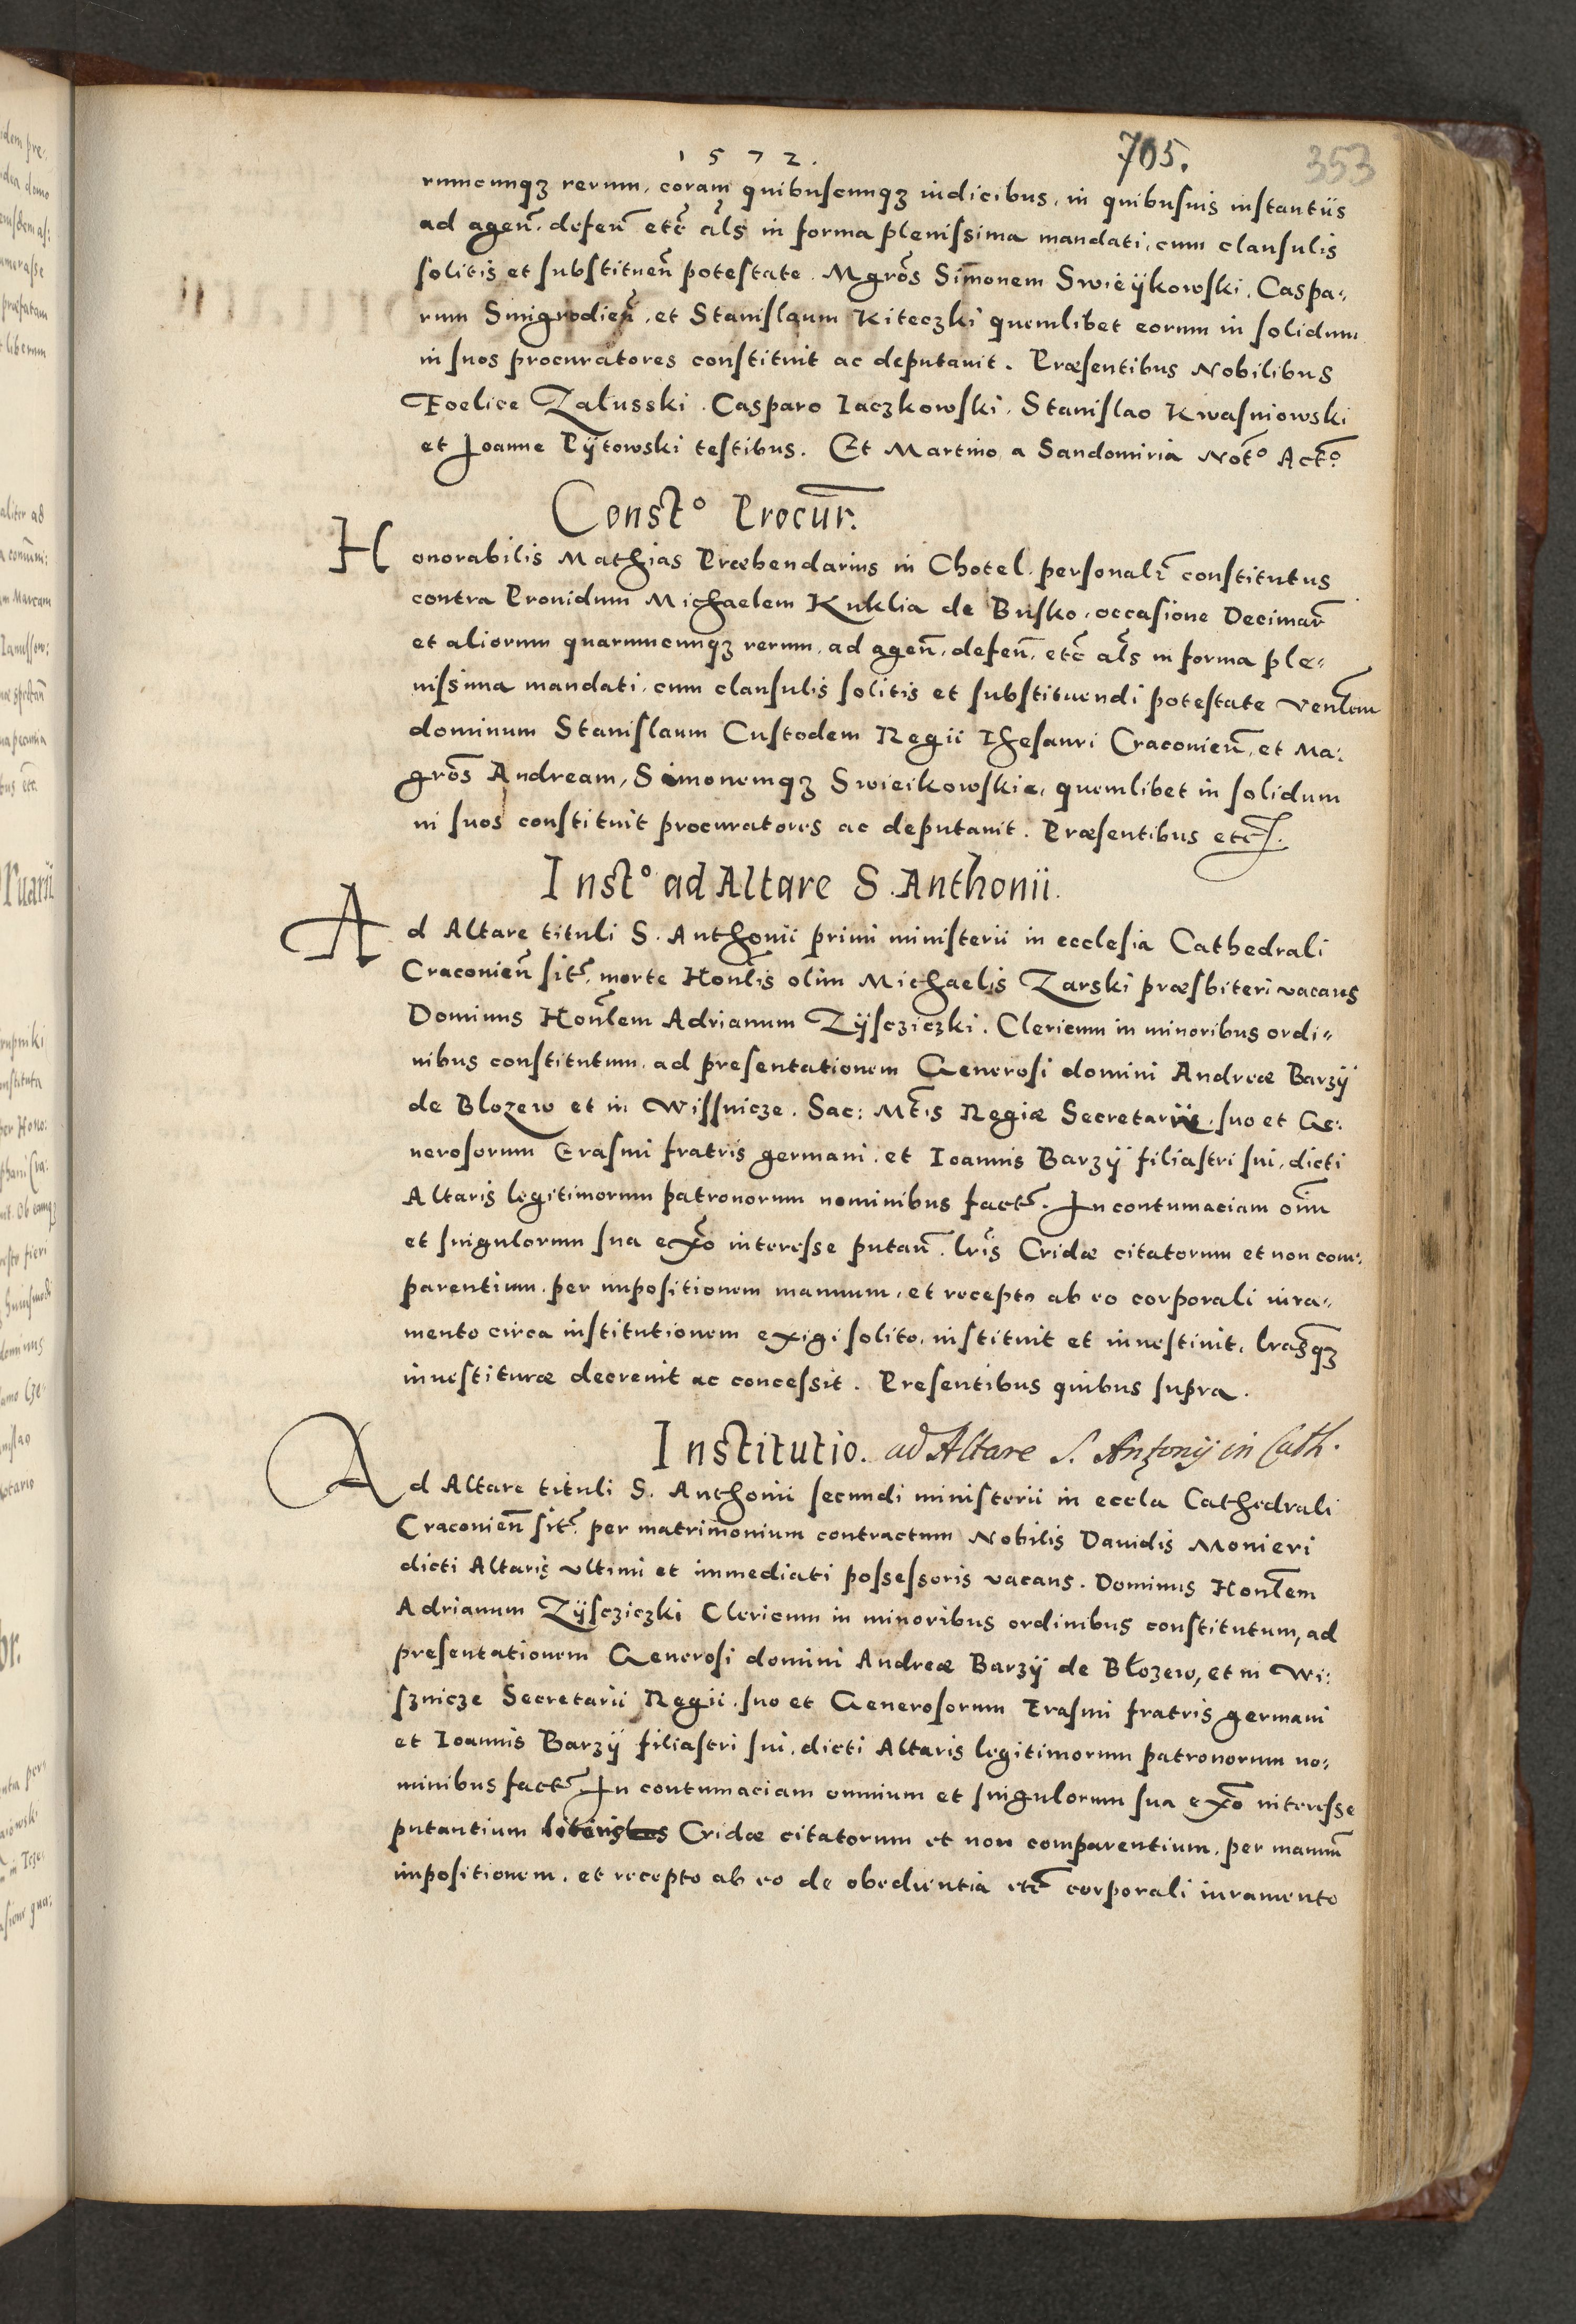 1572.
705.
353
rumcunqꝫ rerum, coram quibuscunqꝫ iudicibus, in quibusuis instantiis
ad ageñ. defeñ etc̃ al̃s in forma plenissima mandati, cum clausulis
solitis et substitueñ potestate. Mgrõs Simonem Swieÿkowski, Caspa-
rum Smigrodieñ, et Stanislaum Kiteczki quemlibet eorum in solidum
in suos procuratores constituit ac deputauit. Præsentibus Nobilibus
Foelice Zalusski. Casparo Iaczkowski, Stanislao Kwasniowski
et Joanne Pÿtowski testibus. Et Martino a Sandomiria Not̃o Act̃o
Const.o Procur̃.
Honorabilis Mathias Præbendarius in Chotel. personalr̃ constitutus
contra Prouidum Michaelem Kuklia de Busko, occasione Decimar̃
et aliorum quarumcunqꝫ rerum, ad ageñ. defeñ. etc̃ al̃s in forma ple-
nissima mandati, cum clausulis solitis et substituendi potestate Ven̄lem
dominum Stanislaum Custodem Regii Thesauri Cracovieñ, et Ma:
grõs Andream, Simonemqꝫ Swieikowskie, quemlibet in solidum
in suos constituit procuratores ac deputauit. Præsentibus etc̃.
Inst.o ad Altare S. Anthonii.
Ad Altare tituli S. Anthonii primi ministerii in ecclesia Cathedrali
Cracovieñ sit̃. morte Hon̄lis olim Michaelis Zarski præsbiteri vacans
Dominus Hon̄lem Adrianum Zÿscziczki. Clericum in minoribus ordi-
nibus constitutum, ad presentationem Generosi domini Andreæ Barzÿ
de Blozew et in Wissnicze. Sac: Mt̃is Regiæ Secretarii, suo et Ge:
nerosorum Erasmi fratris germani, et Ioannis Barzÿ filiastri sui, dicti
Altaris legitimorum patronorum nominibus fact̃. In contumaciam oĩm
et singulorum sua ex̃o interesse putañ. lrĩs Cridæ citatorum et non com:
parentium, per impositionem manuum, et recepto ab eo corporali iura-
mento circa institutionem exigi solito, instituit et inuestiuit, lrãsqꝫ
inuestituræ decreuit ac concessit. Presentibus quibus supra.
Institutio. ad Altare S. Anthonij in Cath.
Ad Altare tituli S. Anthonii secundi ministerii in eccl̃a Cathedrali
Cracovieñ sit̃. per matrimonium contractum Nobilis Dauidis Monieri
dicti Altaris vltimi et immediati possessoris vacans. Dominus Hon̄lem
Adrianum Zÿscziczki Clericum in minoribus ordinibus constitutum, ad
presentationem Generosi domini Andreæ Barzÿ de Błozew, et in Wi:
sznicze Secretarii Regii, suo et Generosorum Erasmi fratris germani
et Ioannis Barzÿ filiastri sui, dicti Altaris legitimorum patronorum no:
minibus fact̃. In contumaciam omnium et singulorum sua ex̃o interesse
putantium Cridæ citatorum et non comparentium, per manuũ
impositionem, et recepto ab eo de obedientia etc̃ corporali iuramento